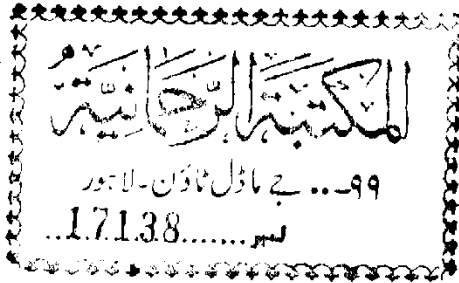 المكتبة الرحمانية
۹۹... جے ماڈل ٹاؤن۔ لاہور
نمبر.......17138..